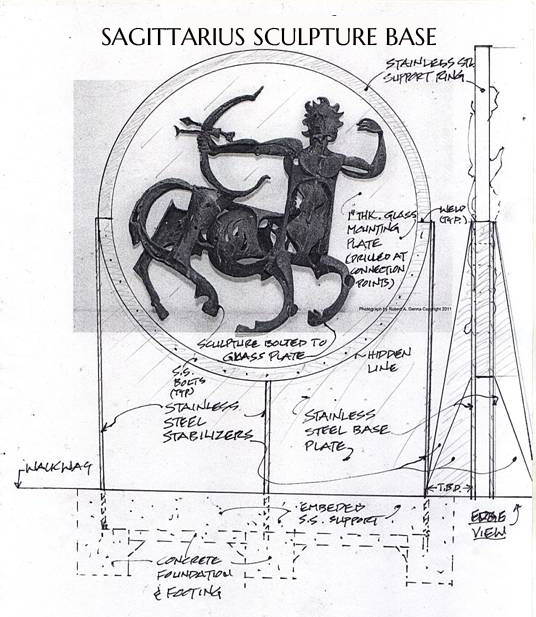 SAGITTARIUS SCULPTURE BASE
STAINLESS STL
SUPPORT RING
1" THK. GLASS
MOUNTING
PLATE
(DRILLED AT
CONNECTION
POINTS)
WELD
(TYP.)
Photograph by Robert A. Genna Copyright 2011
SCULPTURE BOLTED TO
GLASS PLATE
HIDDEN
LINE
S.S.
BOLTS
(TYP)
STAINLESS
STEEL
STABILIZERS
STAINLESS
STEEL BASE
PLATE
WALKWAY
T.B.D.
EMBEDED
S.S. SUPPORT
EDGE
VIEW
CONCRETE
FOUNDATION
& FOOTING